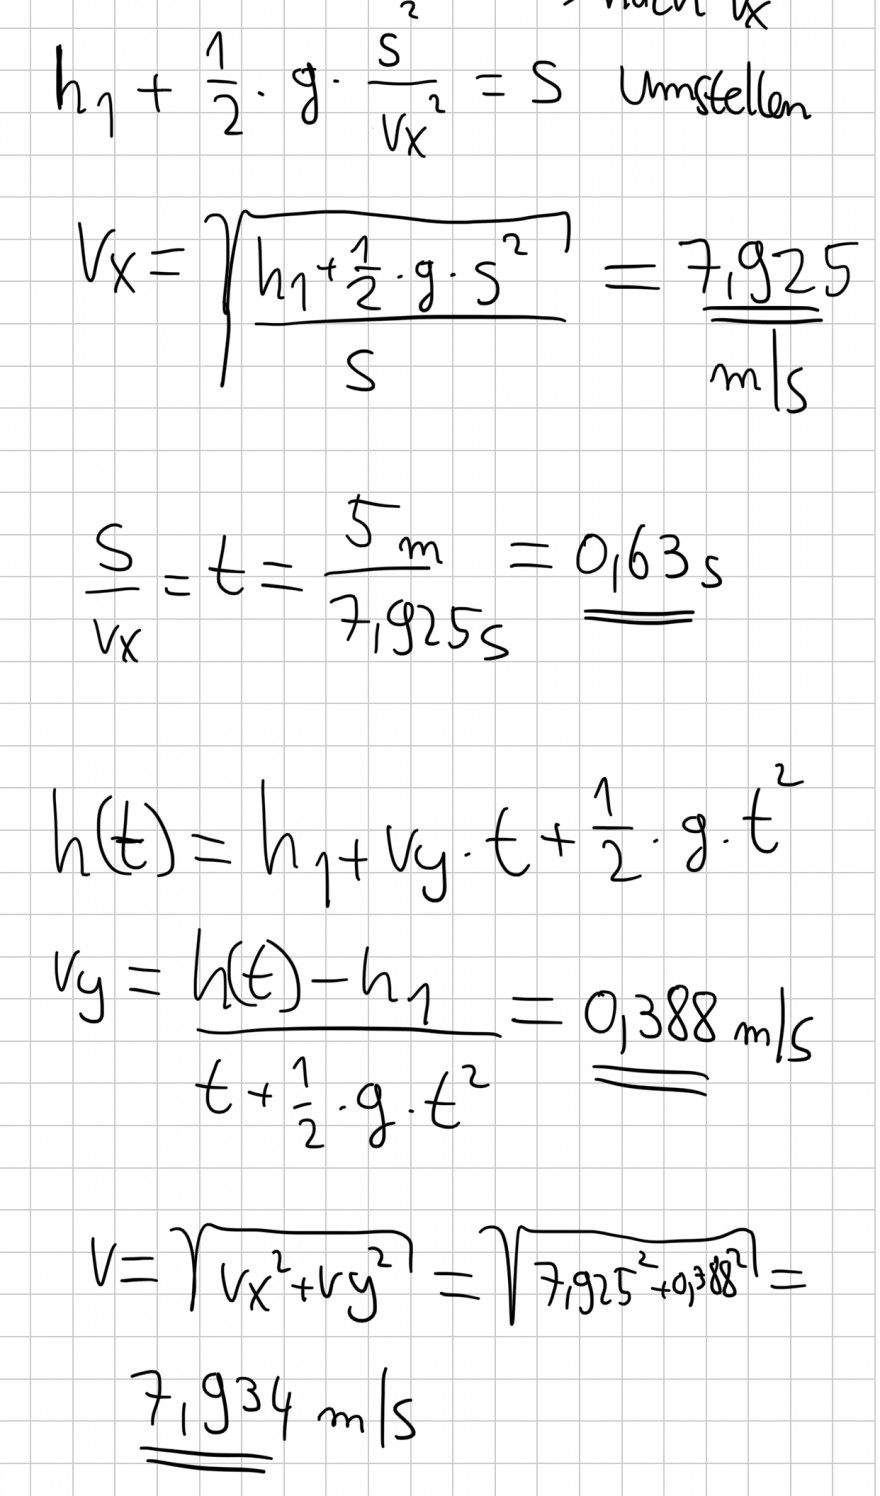 nach vx
h₁ + 1/2 · g · s²/vx² = s Umstellen
vx = √((h₁ + 1/2 · g · s²)/s) = 7,925 m/s
s/vx = t = 5m/7,925s = 0,63s
h(t) = h₁ + vy · t + 1/2 · g · t²
vy = (h(t) - h₁)/(t + 1/2 · g · t²) = 0,388 m/s
v = √(vx² + vy²) = √(7,925² + 0,388²) =
7,934 m/s